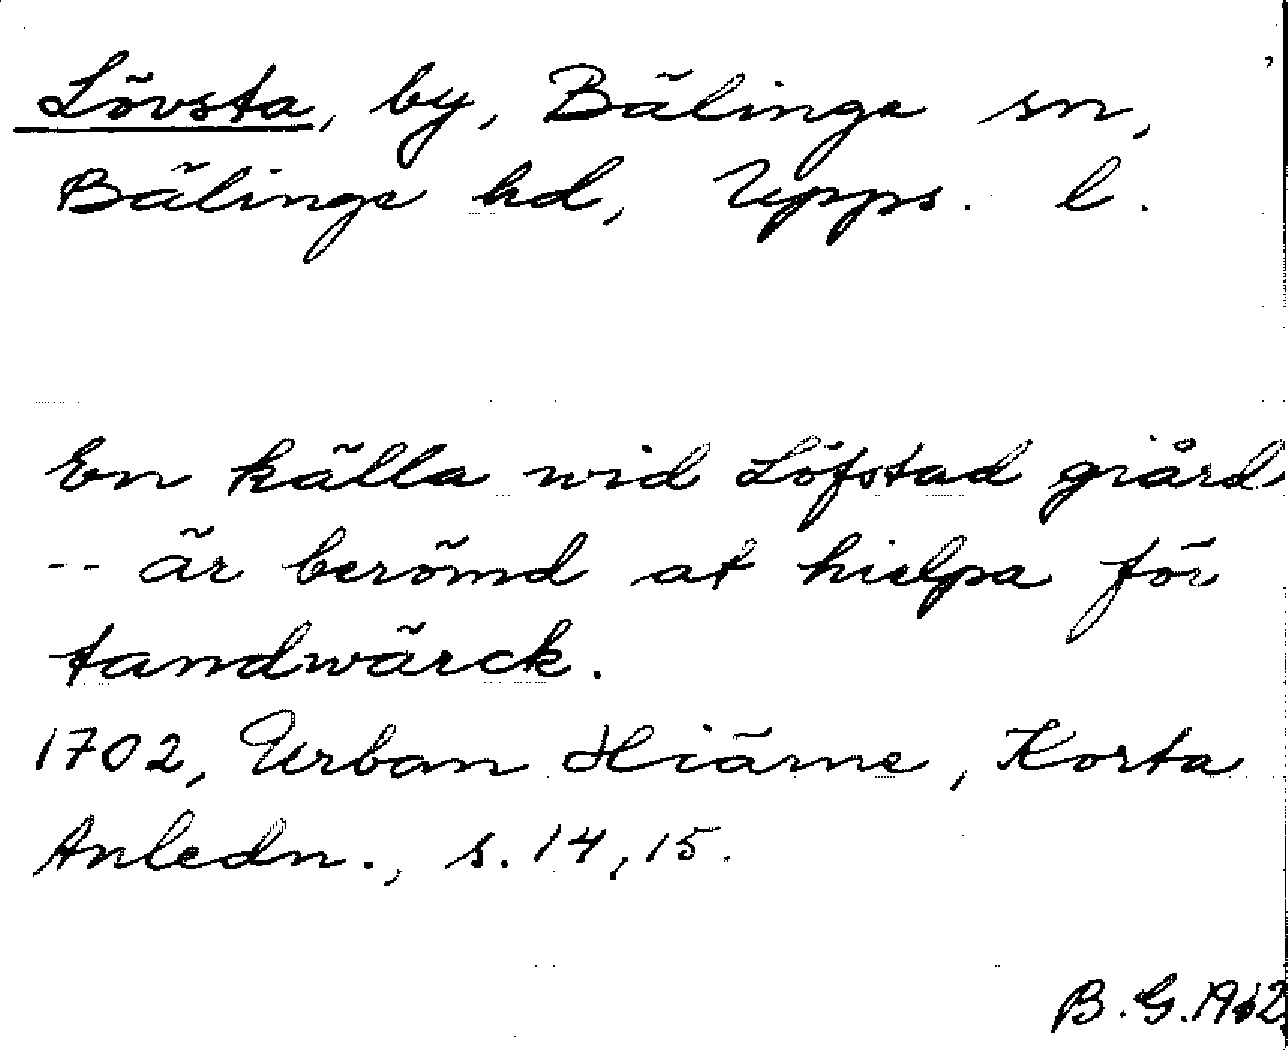 Lövsta, by, Bälinge sn,
Bälinge hd, Upps. l.
En källa wid Löfstad giård
-- är berömd at hielpa för
tandwärck.
1702, Urban Hiärne, Korta
Anledn., s. 14, 15.
B.G. 1962